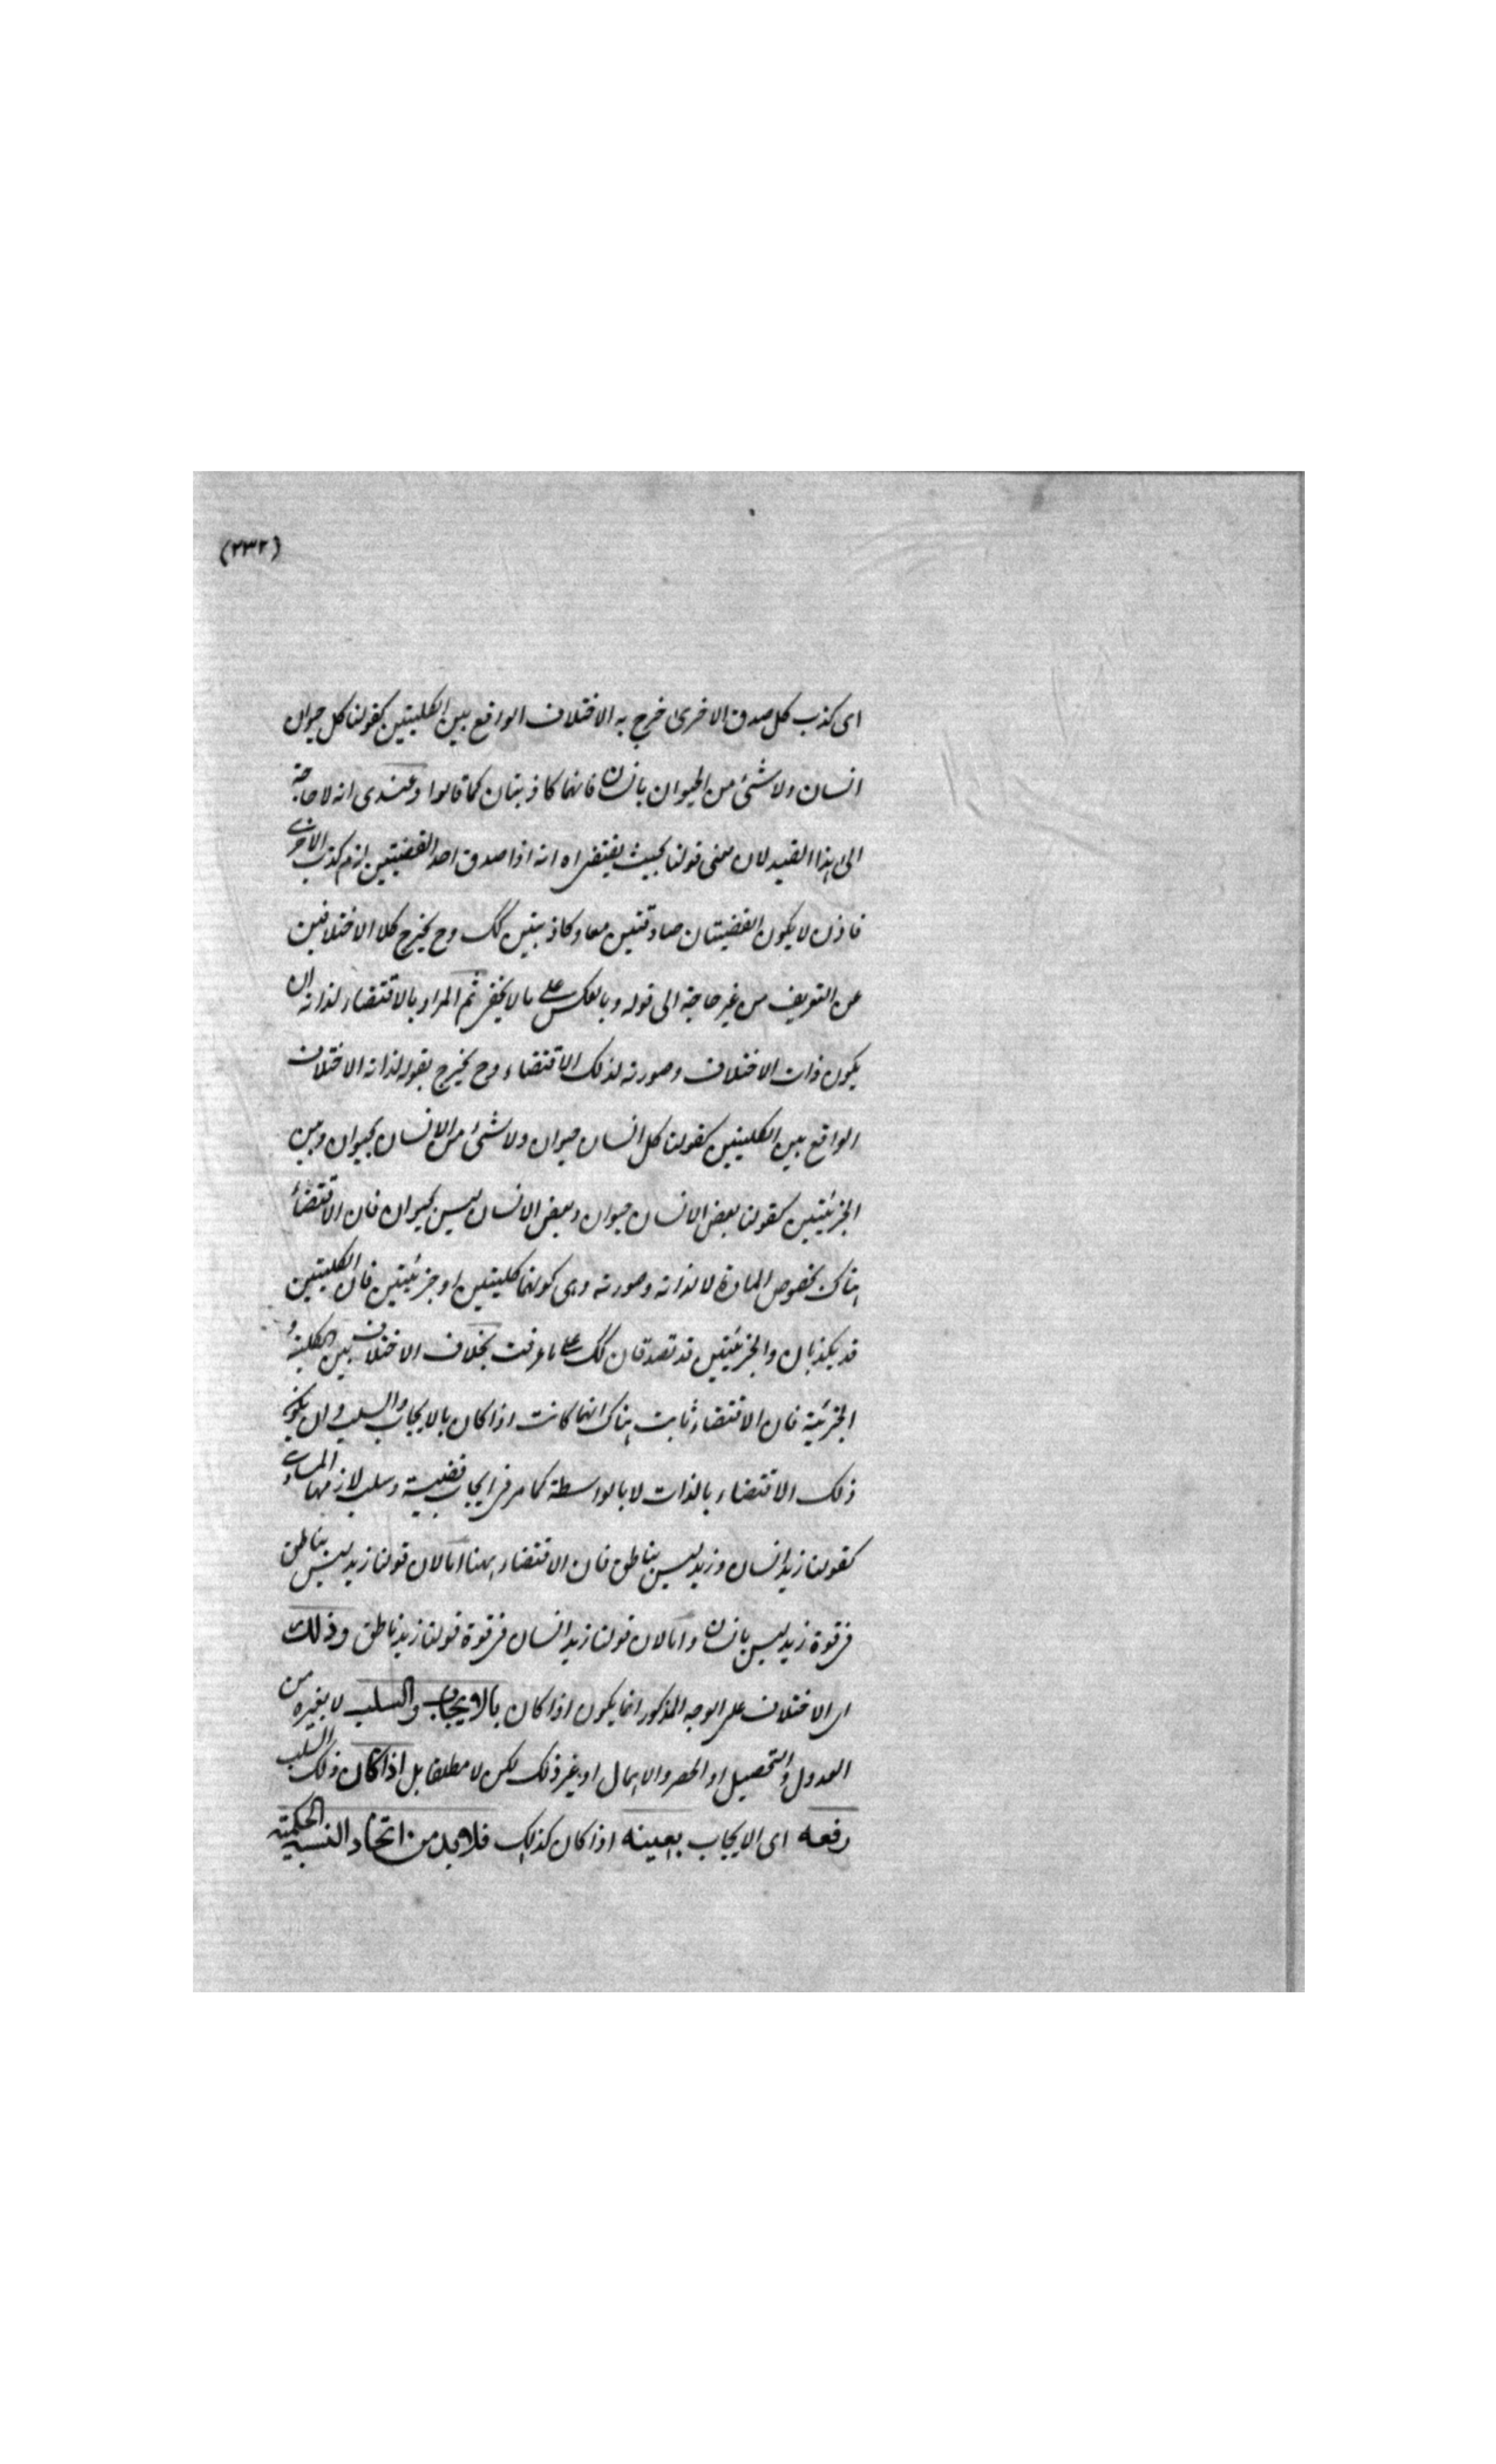 (٢٣٢)
اى كذب كل صدق الاخرى خرج به الاختلاف الواقع بين الكليتين كقولنا كل حيوان
انسان ولا شئ من الحيوان بانسان فانهما كاذبتان كما قالوا وعندى انه لا حاجة
الى هذا القيد لان معنى قولنا بحيث يقتضى اه انه اذا صدق احد القضيتين لزم كذب الاخرى
فاذن لا يكون القضيتان صادقتين معا وكاذبتين كك وح يخرج كلا الاختلافين
عن التعريف من غير حاجة الى قوله وبالعكس على ما لا يخفى ثم المراد بالاقتضاء لذاته ان
يكون ذات الاختلاف وصورته لذلك الاقتضاء وح يخرج بقوله لذاته الاختلاف
الواقع بين الكليتين كقولنا كل انسان حيوان ولا شئ من الانسان بحيوان وبين
الجزئيتين كقولنا بعض الانسان حيوان وبعض الانسان ليس بحيوان فان الاقتضاء
هناك بخصوص المادة لا لذاته وصورته وهى كونهما كليتين او جزئيتين فان الكليتين
قد يكذبان والجزئيتين قد تصدقان كك على ما عرفت بخلاف الاختلاف بين الكلية و
الجزئية فان الاقتضاء ثابت هناك انهما كانت اذا كان بالايجاب والسلب وان يكون
ذلك الاقتضاء بالذات لا بالواسطة كما مر فى ايجاب قضية وسلب لازمها المساوى
كقولنا زيد انسان وزيد ليس بناطق فان الاقتضاء ههنا اما لان قولنا زيد ليس بناطق
فى قوة زيد ليس بانسان واما لان قولنا زيد انسان فى قوة قولنا زيد ناطق وذلك
اى الاختلاف على الوجه المذكور انما يكون اذا كان بالايجاب والسلب لا بغيره من
العدول والتحصيل او الحصر والاهمال او بغير ذلك لكن لا مطلقا بل اذا كان ذلك السلب
رفعه اى الايجاب بعينه اذا كان كذلك فلا بد من اتحاد النسبة الحكمية